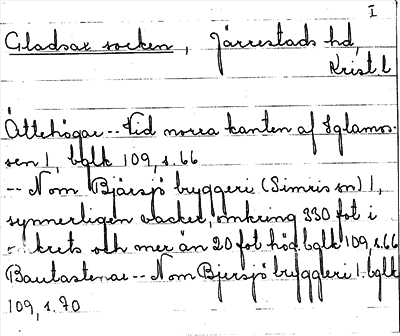 I
Gladsax socken, Järrestads hd,
Krist l
Ättehögar -- Vid norra kanten af Iglamos-
sen 1, bglk 109, s. 66
-- N om Bjärsjö byggeri (Simris sn) 1,
synnerligen vacker, omkring 330 fot i
krets och mer än 20 fot hög bglk 109, s. 66
Bautastenar -- N om Bjersjö byggleri 1. bglk
109, s. 70